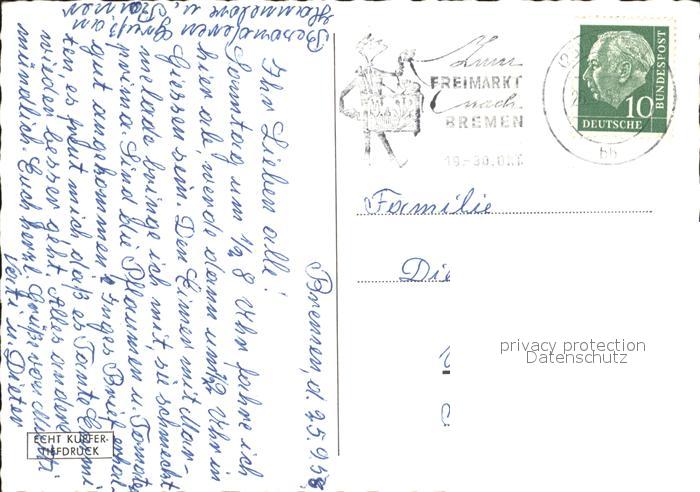 Bremen, d. 25.9.58
Ihr Lieben alle!
Sonntag um 1/2 8 Uhr fahre ich
hier ab, werde dann um 1/2 Uhr in
Giessen sein. Den Eimer mit Mar-
melade bringe ich mit, sie schmeckt
prima. Sind die Pflaumen u. Tomaten
gut angekommen? Inges Brief erhal-
ten, es freut mich daß es Tante Emmi
wieder besser geht. Alles andere
mündlich. Euch herzl. Grüße von
u. Dieter
Besonderen Gruß an
Hannelore u.
Zum
FREIMARKT
nach
BREMEN
19.-30. OKT.
bb
DEUTSCHE
BUNDESPOST
10
Familie
Die
privacy protection
Datenschutz
ECHT KUPFER-
TIEFDRUCK